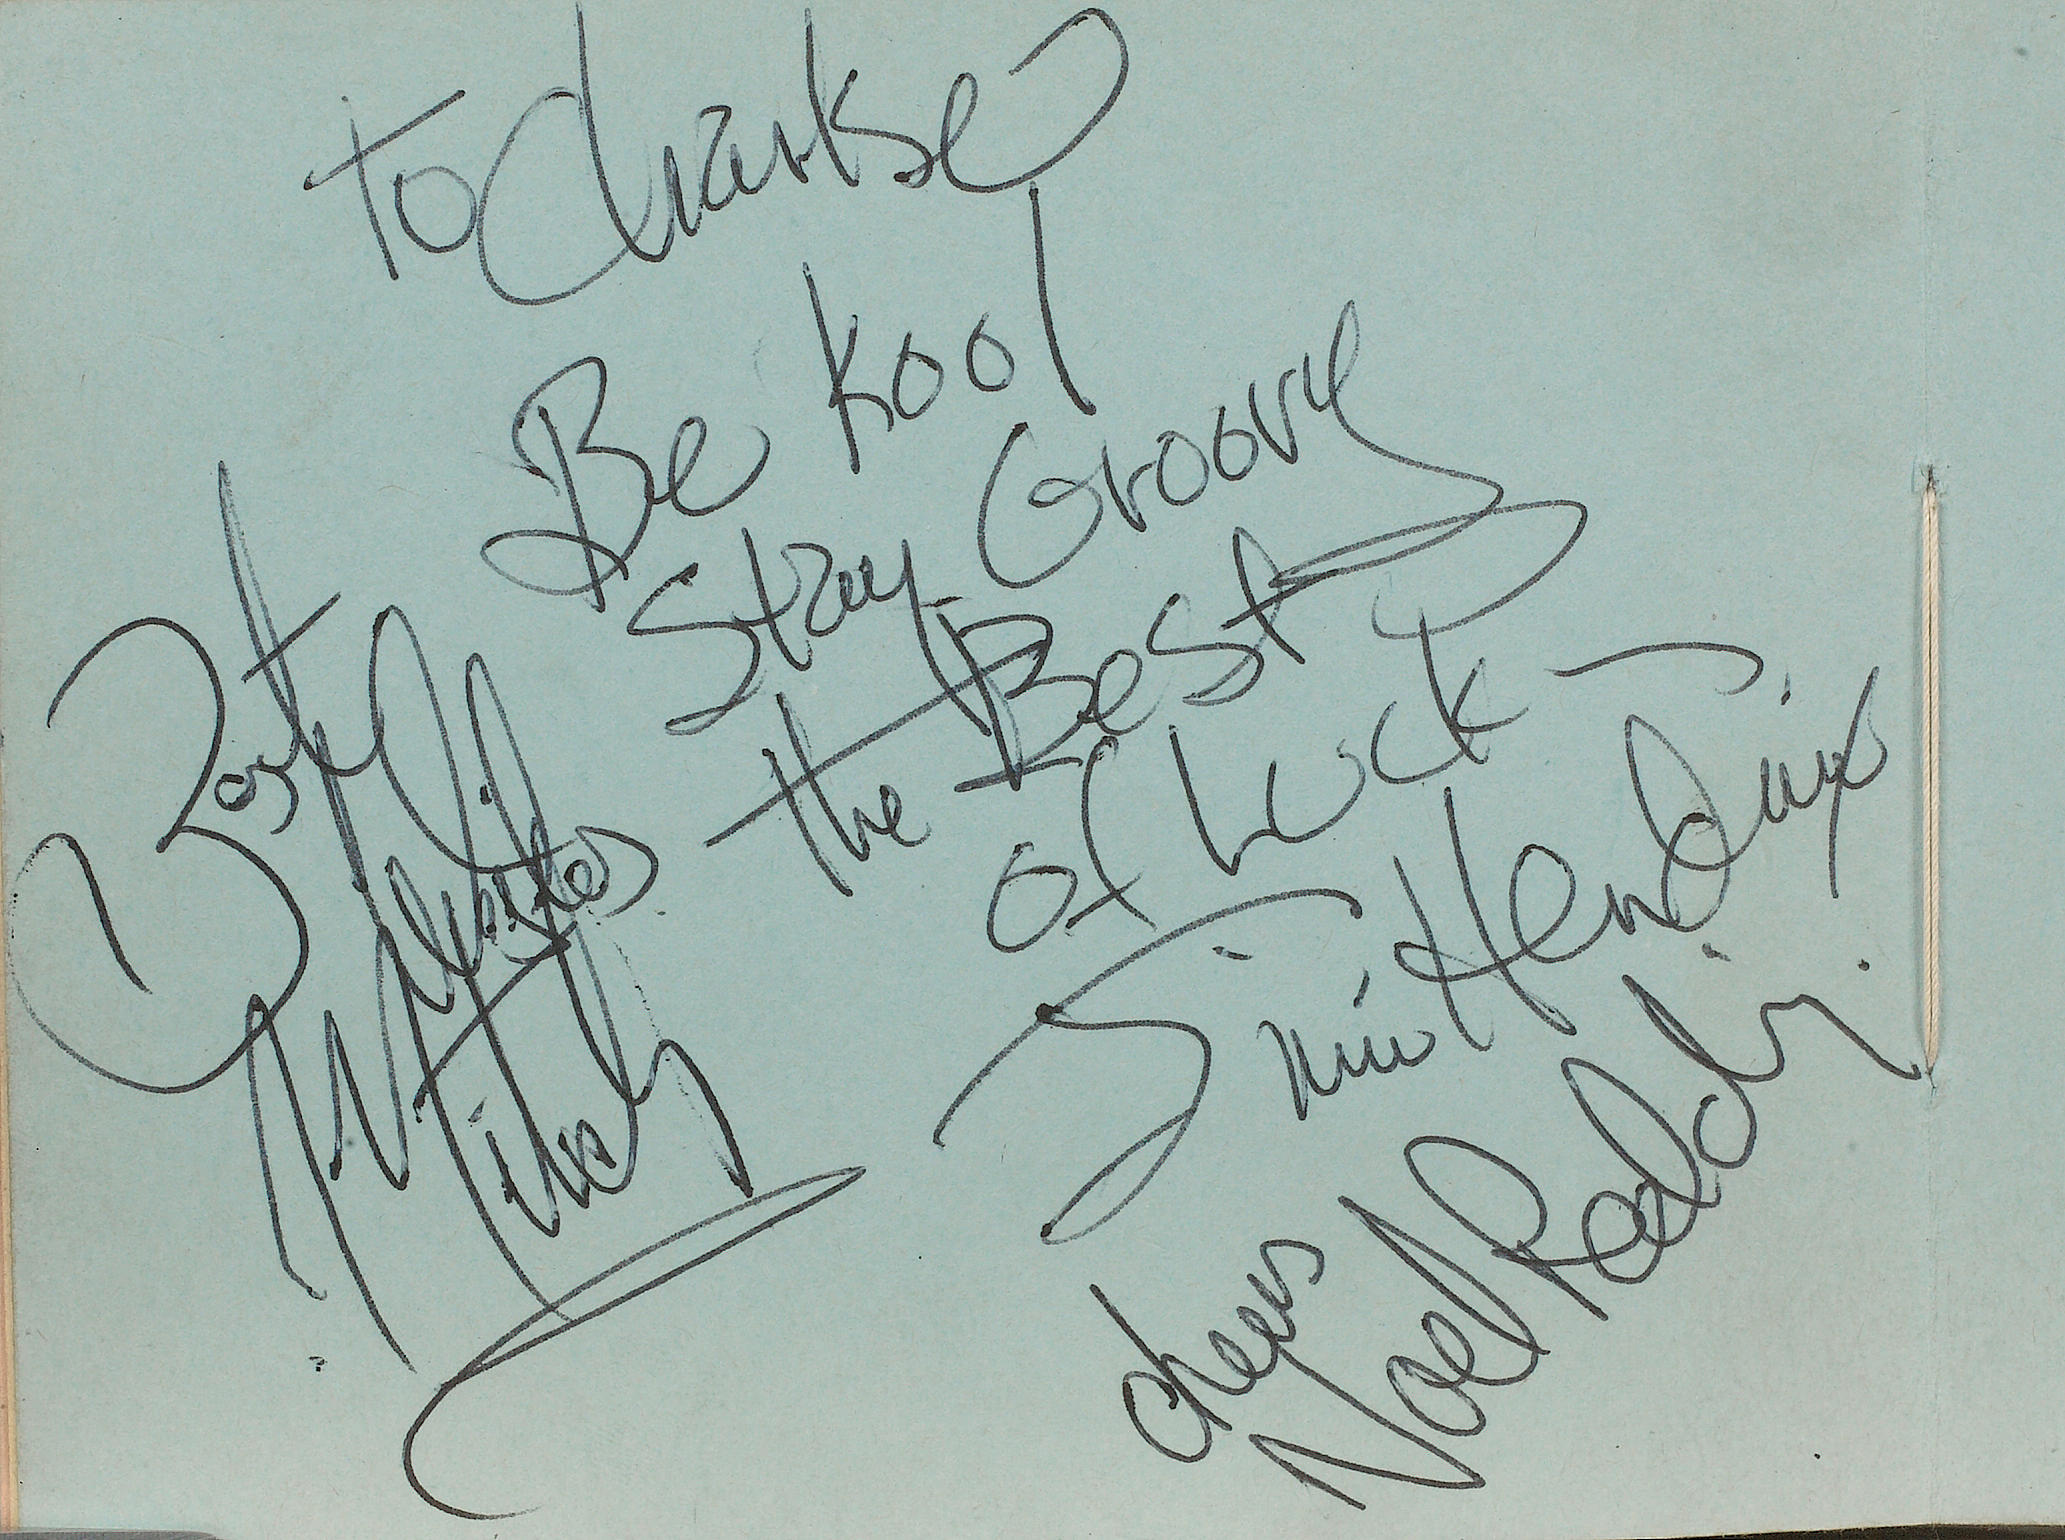 To Clarke
Be Kool
Stay Groovy
the Best
of Luck
Jimi Hendrix
Best
Wishes
Mitch
cheers
Noel Redding.